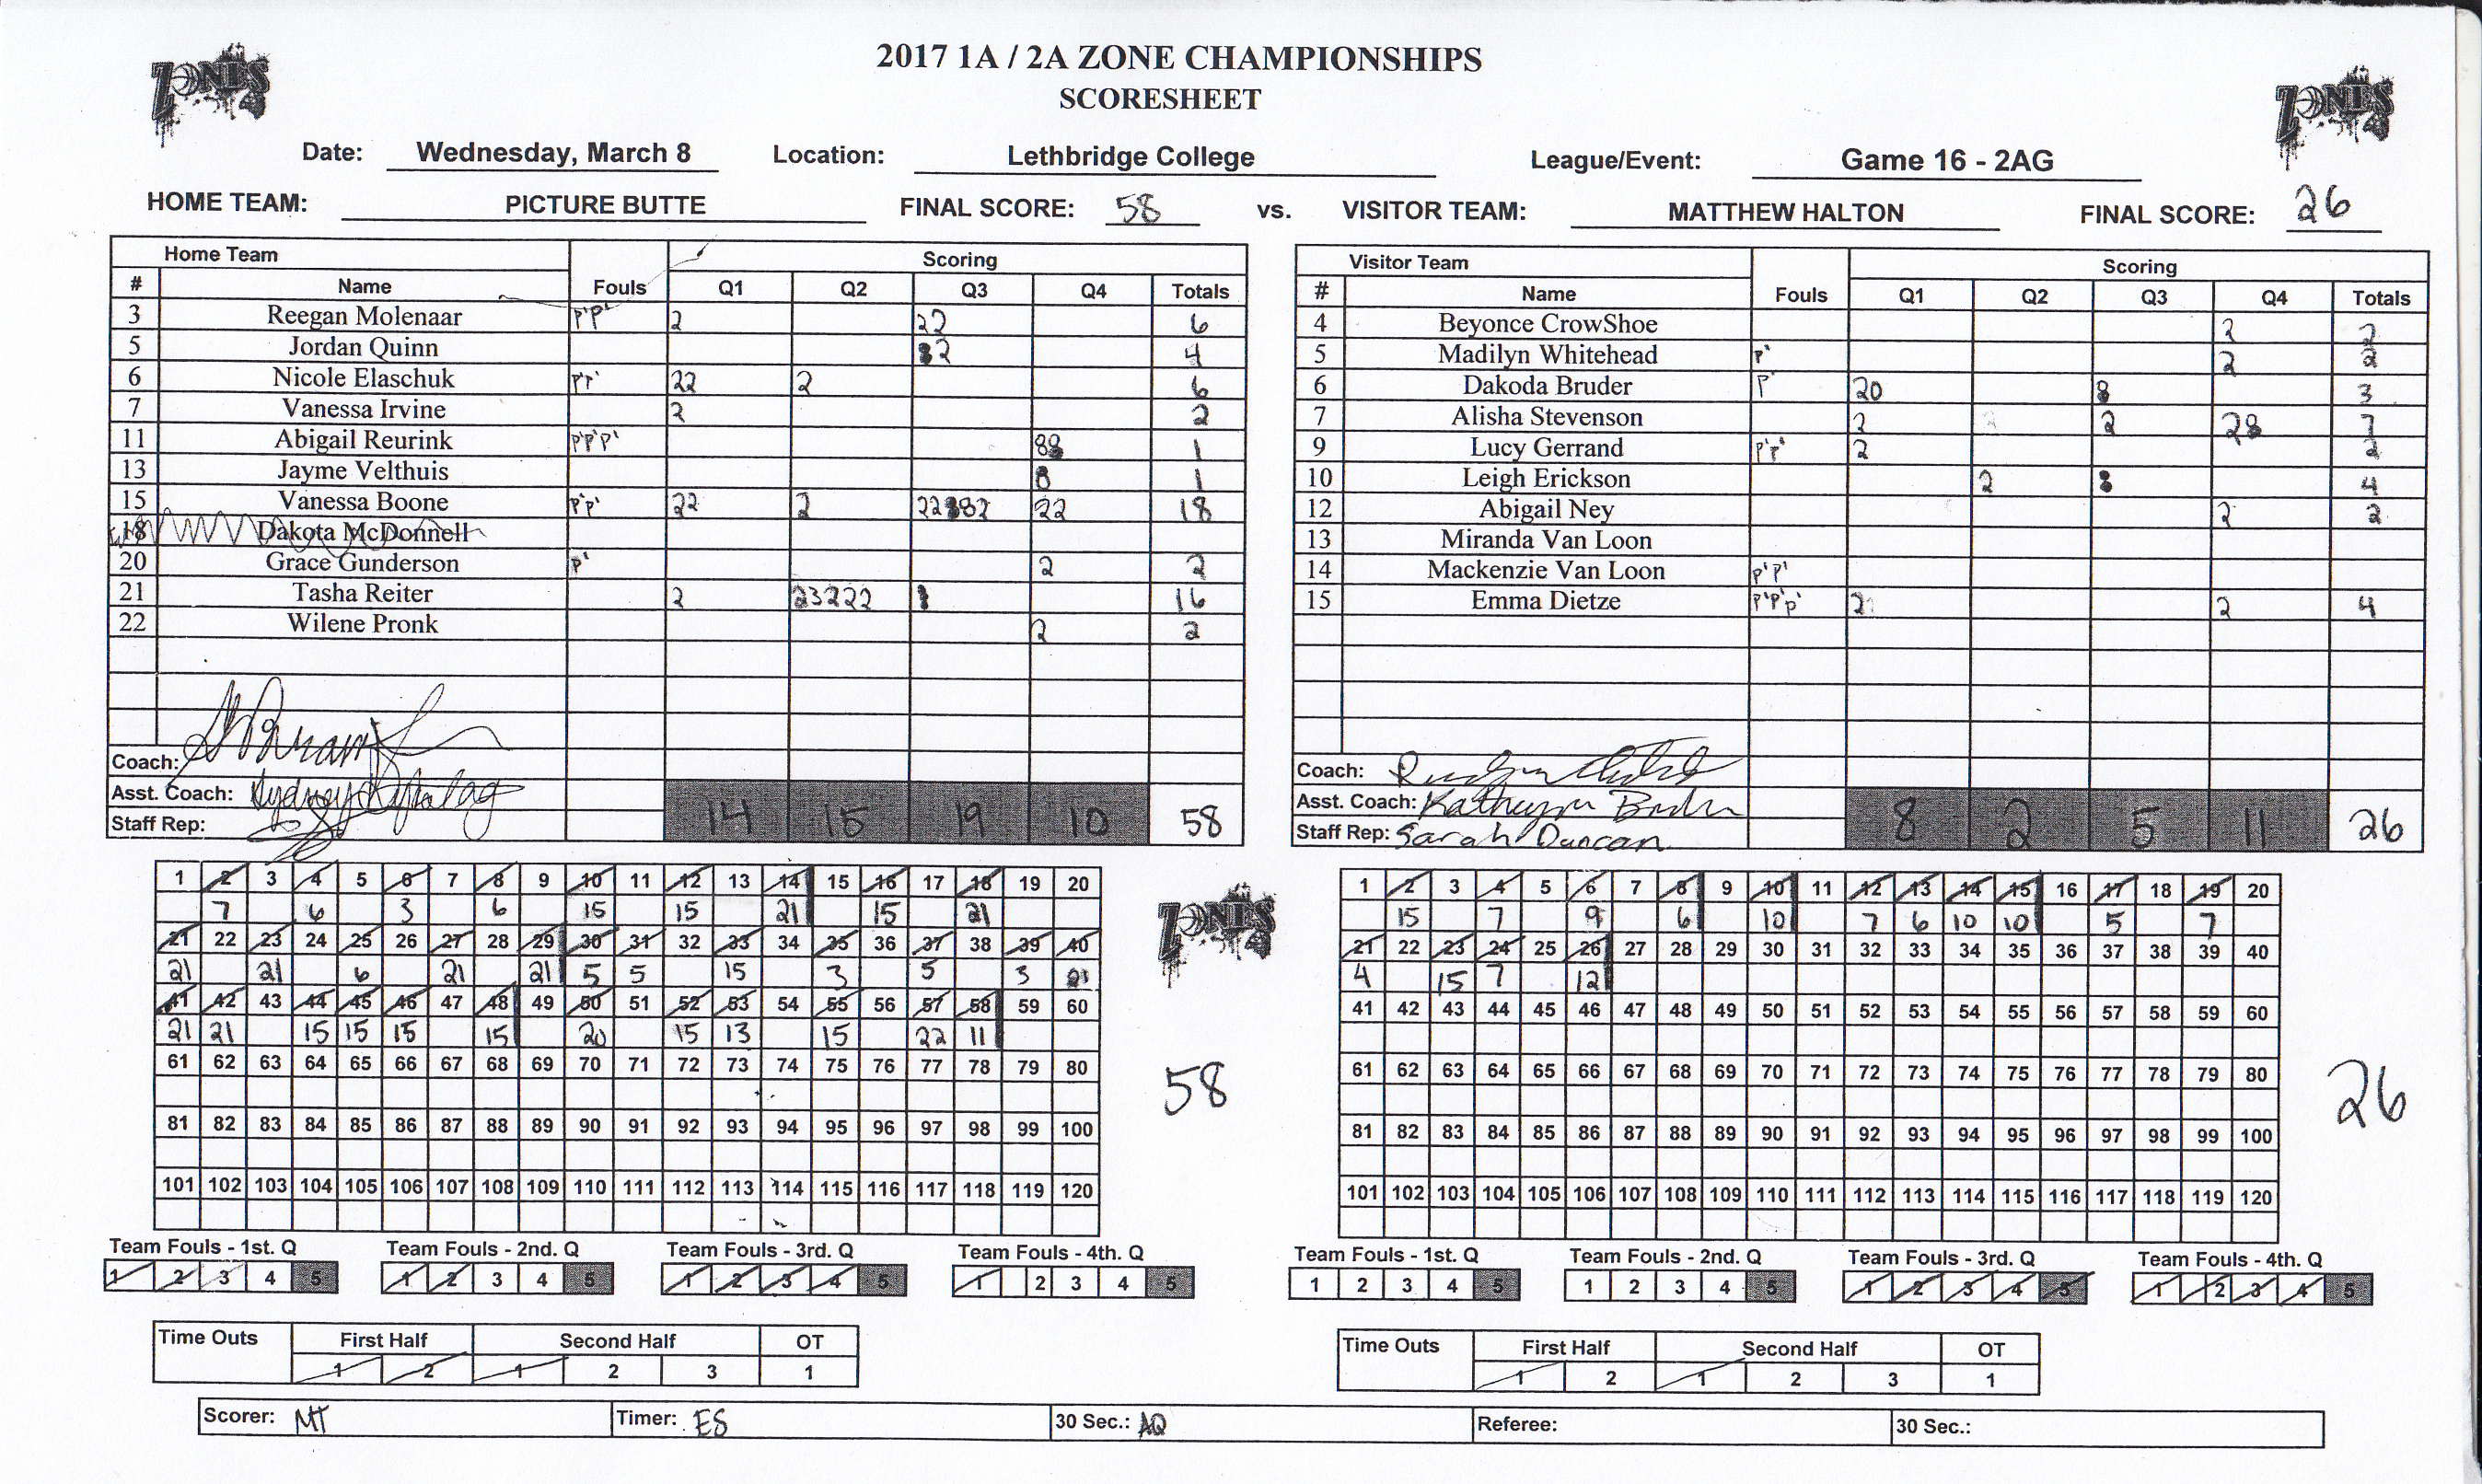 2017 1A / 2A ZONE CHAMPIONSHIPS
SCORESHEET
ZONES
ZONES
Date: Wednesday, March 8 Location: Lethbridge College League/Event: Game 16 - 2AG
HOME TEAM: PICTURE BUTTE FINAL SCORE: 58 vs. VISITOR TEAM: MATTHEW HALTON FINAL SCORE: 26
Home Team Scoring
# Name Fouls Q1 Q2 Q3 Q4 Totals
3 Reegan Molenaar P'P' 2 22 6
5 Jordan Quinn 2 4
6 Nicole Elaschuk P'P' 22 2 6
7 Vanessa Irvine 2 2
11 Abigail Reurink P'P'P' 1
13 Jayme Velthuis 1
15 Vanessa Boone P'P' 22 2 22 2 22 18
18 Dakota McDonnell
20 Grace Gunderson P' 2 2
21 Tasha Reiter 2 23222 16
22 Wilene Pronk 2 2
Coach:
Asst. Coach: Sydney
Staff Rep:
14 15 19 10 58
Visitor Team Scoring
# Name Fouls Q1 Q2 Q3 Q4 Totals
4 Beyonce CrowShoe 2 2
5 Madilyn Whitehead P' 2 2
6 Dakoda Bruder P' 20 3
7 Alisha Stevenson 2 2 2 7
9 Lucy Gerrand P'P' 2 2
10 Leigh Erickson 2 4
12 Abigail Ney 2 2
13 Miranda Van Loon
14 Mackenzie Van Loon P'P'
15 Emma Dietze P'P'P' 2 2 4
Coach:
Asst. Coach: Kathrynn
Staff Rep: Sarah Duncan
8 2 5 11 26
1 2 3 4 5 6 7 8 9 10 11 12 13 14 15 16 17 18 19 20
7 6 3 6 15 15 21 15 21
21 22 23 24 25 26 27 28 29 30 31 32 33 34 35 36 37 38 39 40
21 21 6 21 21 5 5 15 3 5 3 21
41 42 43 44 45 46 47 48 49 50 51 52 53 54 55 56 57 58 59 60
21 21 15 15 15 15 20 15 13 15 22 11
61 62 63 64 65 66 67 68 69 70 71 72 73 74 75 76 77 78 79 80
81 82 83 84 85 86 87 88 89 90 91 92 93 94 95 96 97 98 99 100
101 102 103 104 105 106 107 108 109 110 111 112 113 114 115 116 117 118 119 120
ZONES
58
1 2 3 4 5 6 7 8 9 10 11 12 13 14 15 16 17 18 19 20
15 7 9 6 10 7 6 10 10 5 7
21 22 23 24 25 26 27 28 29 30 31 32 33 34 35 36 37 38 39 40
4 15 7 12
41 42 43 44 45 46 47 48 49 50 51 52 53 54 55 56 57 58 59 60
61 62 63 64 65 66 67 68 69 70 71 72 73 74 75 76 77 78 79 80
81 82 83 84 85 86 87 88 89 90 91 92 93 94 95 96 97 98 99 100
101 102 103 104 105 106 107 108 109 110 111 112 113 114 115 116 117 118 119 120
26
Team Fouls - 1st. Q Team Fouls - 2nd. Q Team Fouls - 3rd. Q Team Fouls - 4th. Q
1 2 3 4 5 1 2 3 4 5 1 2 3 4 5 1 2 3 4 5
Team Fouls - 1st. Q Team Fouls - 2nd. Q Team Fouls - 3rd. Q Team Fouls - 4th. Q
1 2 3 4 5 1 2 3 4 5 1 2 3 4 5 1 2 3 4 5
Time Outs First Half Second Half OT
1 2 1 2 3 1
Time Outs First Half Second Half OT
1 2 1 2 3 1
Scorer: MT Timer: ES 30 Sec.: AQ Referee: 30 Sec.: